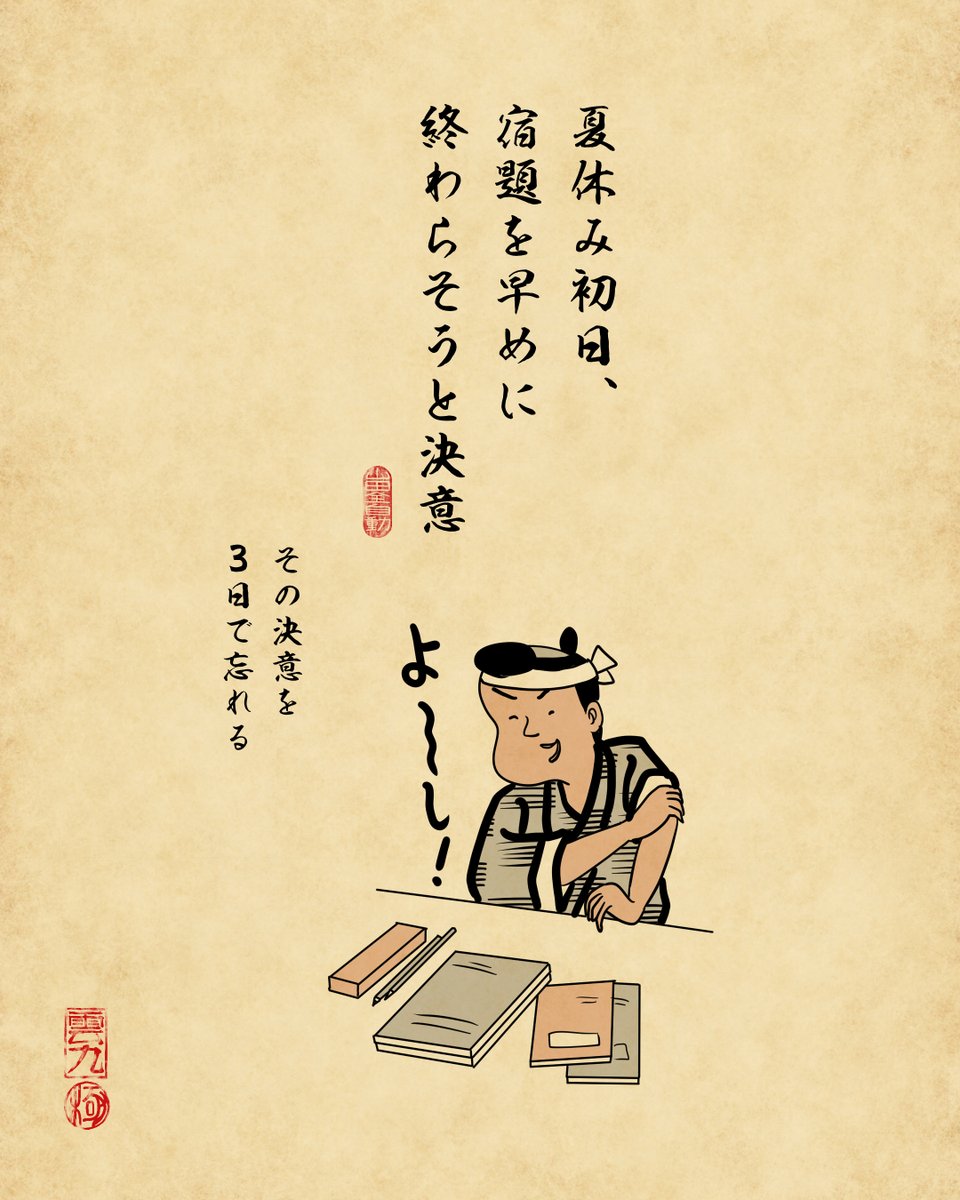 夏休み初日、
宿題を早めに
終わらそうと決意
その決意を
3日で忘れる
よ〜し!